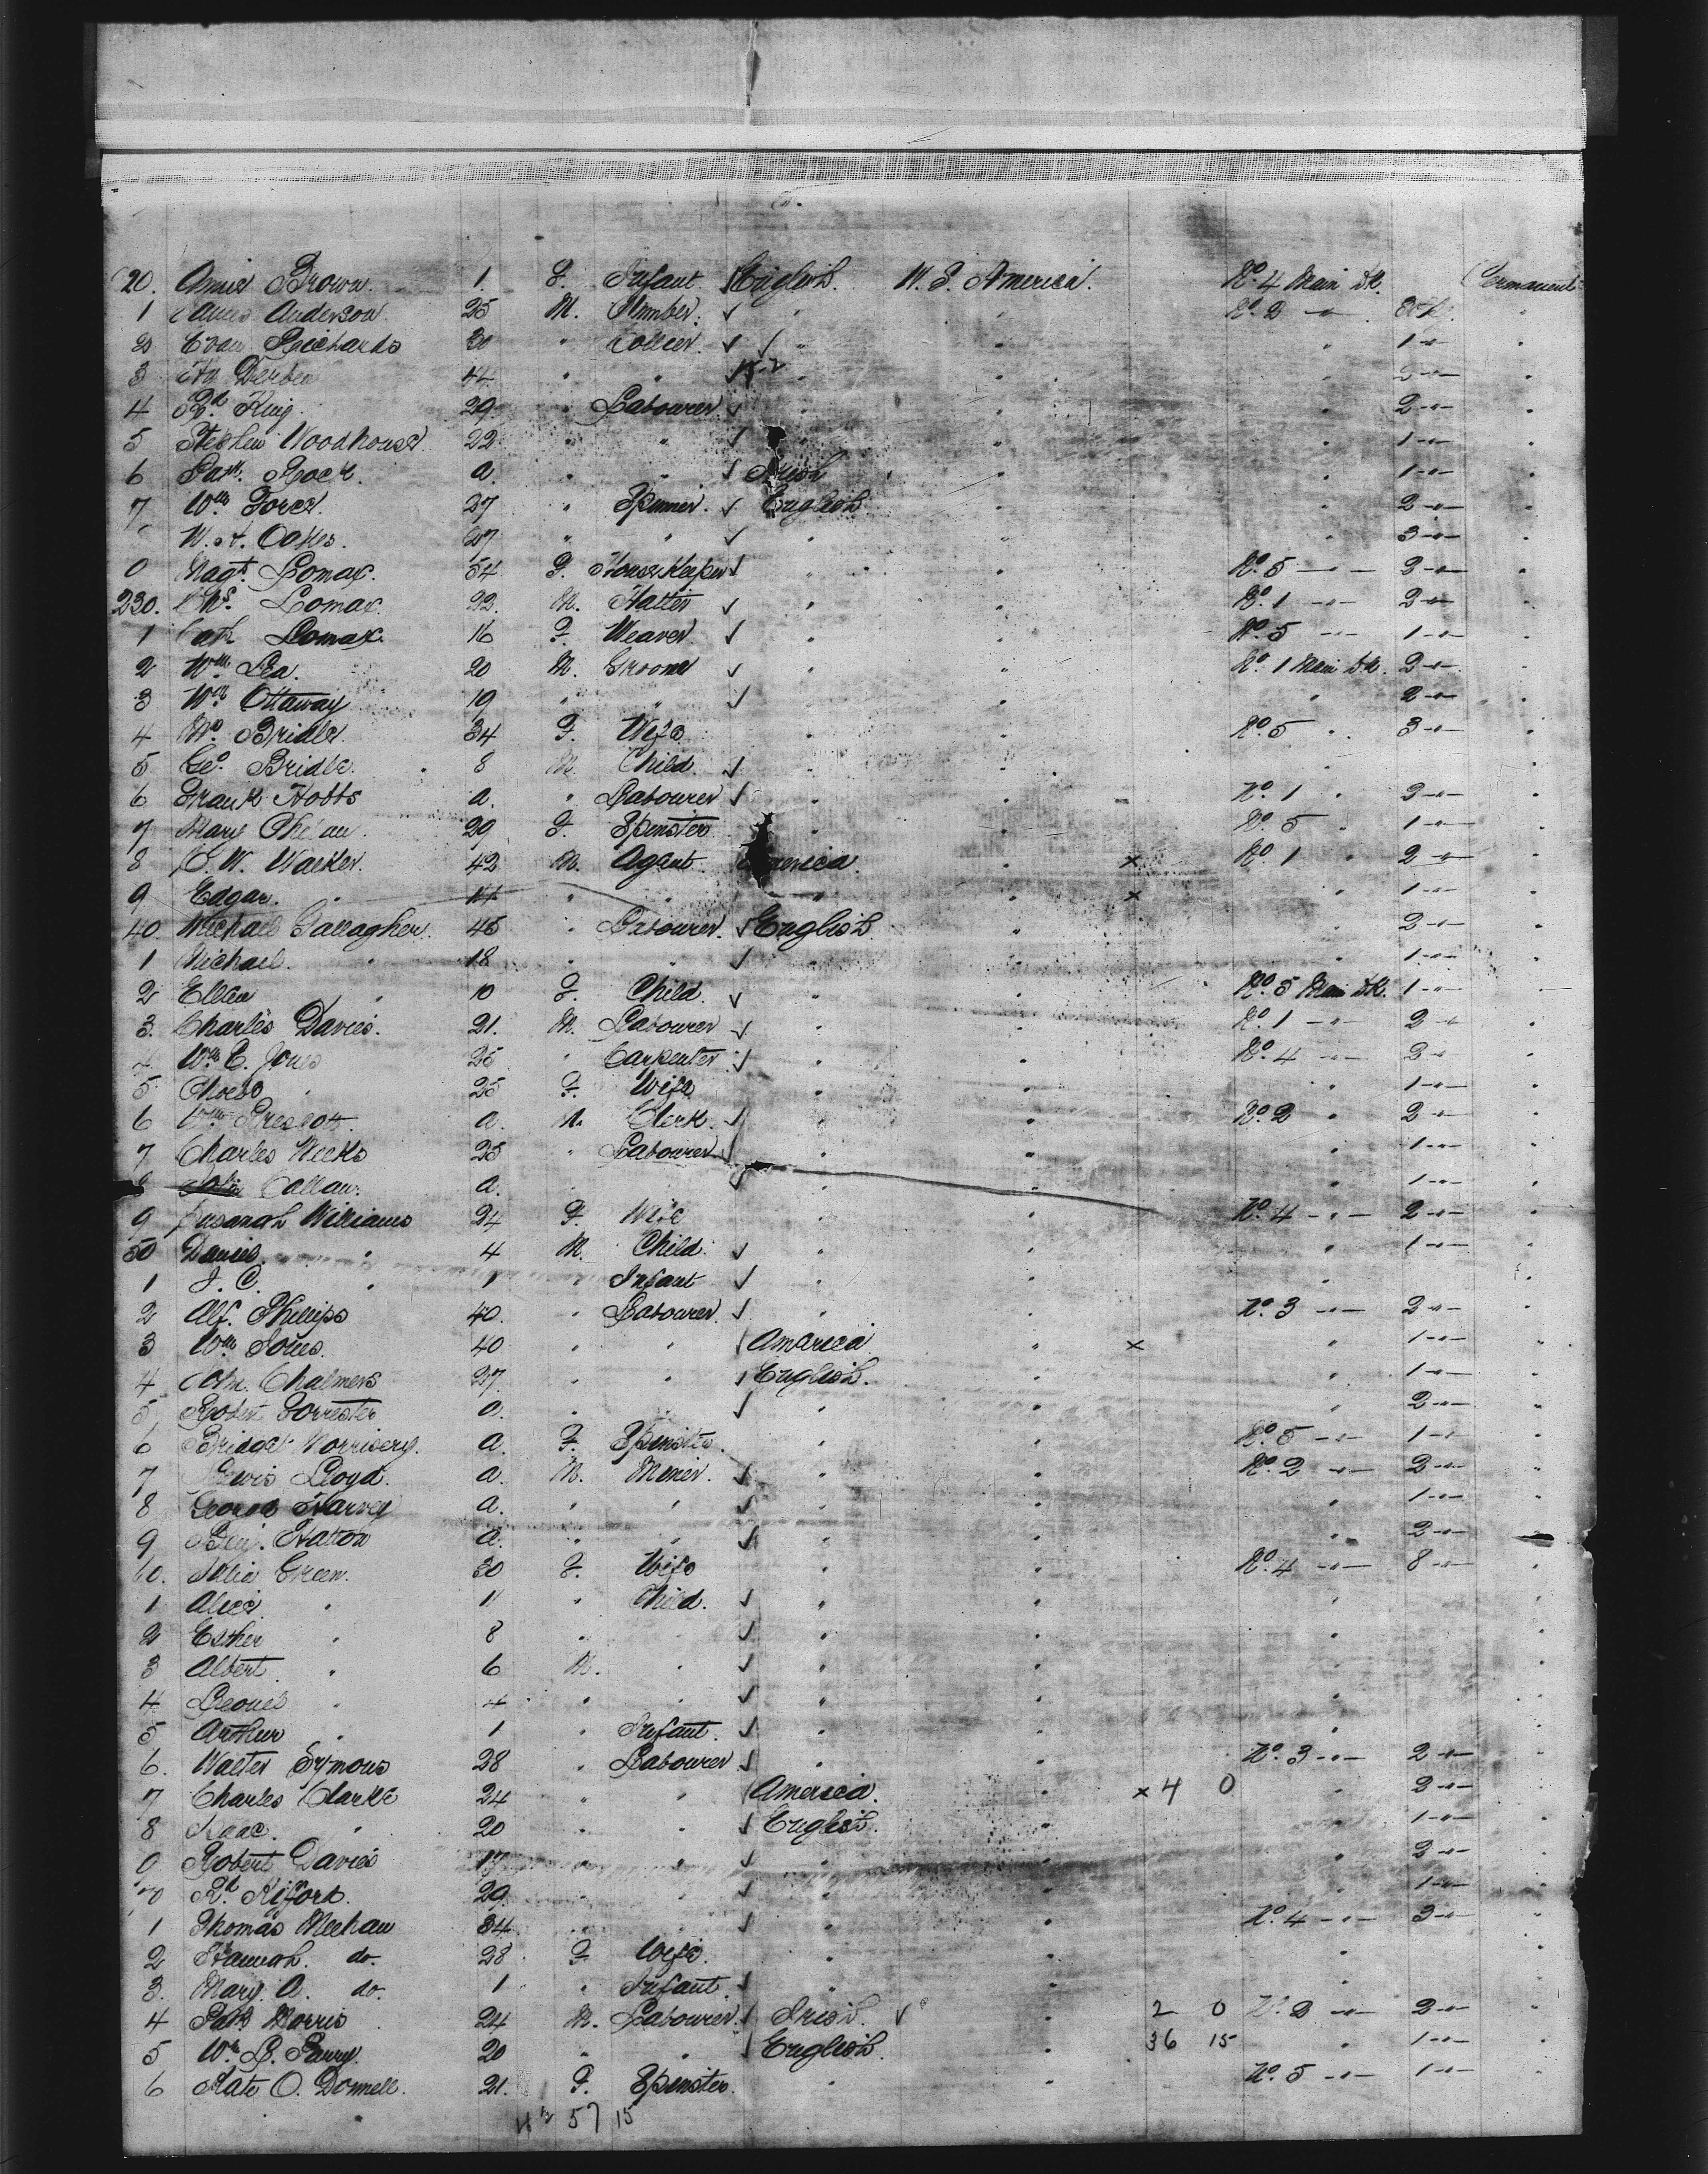 20. Annie Brown. 1. F. Infant. English. U. S. America. No. 4 Main Dk. Permanent
1 James Anderson. 25 M. Plumber. " " No. 2 -"-
2 Evan Richards 30 " Collier. " " " 1 -"-
3 44 " " " "
4 Rd. King. 29. " Labourer. " 2 -"-
5 Stephen Woodhouse. 22 " " " " 1 -"-
6 Patk. Rock. a. " " Irish " " 1 -"-
7 Wm. Force. 27 " Spinner. English " " 2 -"-
W. H. Oakes. 27 " " " " " 3 -"-
Magt. Lomax. 54 F. House Keeper " " No. 5 -"- 2 -"-
230. Chs. Lomax. 22. M. Hatter " " No. 1 -"- 2 -"-
1 Cath Lomax. 16 F. Weaver " " No. 5 -"- 1 -"-
2 Wm. Lea. 20 M. Groom " " No. 1 Main Dk. 2 -"-
3 Wm. Ottaway 19 " " " " " 2 -"-
4 Bridle 34 F. Wife " " No. 5 " 3 -"-
5 Geo. Bridle. 8 M. Child. " " "
6 Frank Hobbs a. " Labourer " " No. 1 " 2 -"-
7 Mary Phelan. 29 F. Spinster " " No. 5 " 1 -"-
8 W. Walker. 42 M. Agent America. " × No. 1 " 2 -"-
9 Edgar. " 11 " " " " × " 1 -"-
40. Michael Gallagher. 45 " Labourer. English " " 2 -"-
1 Michael. " 18 " " " " 1 -"-
2 Ellen " 10 F. Child. " " No. 5 Main Dk. 1 -"-
3. Charles Davies. 21. M. Labourer " " No. 1 -"- 2 -"-
4 Wm. E. Jones 25 " Carpenter " " No. 4 -"- 2 -"-
5 " 25 F. Wife " " " 1 -"-
6 Wm. Prescott. a. M. Clerk. " " No. 2 " 2 -"-
7 Charles Weeks 25 " Labourer " " 1 -"-
Callan. a. " " " 1 -"-
9 Susanah Williams 24 F. Wife " " No. 4 -"- 2 -"-
50 Daniel. " 4 M. Child. " " " 1 -"-
1 J. C. " 1 " Infant " " "
2 Alf. Phillips 40. " Labourer. " " No. 3 -"- 2 -"-
3 Wm. Jones. 40 " " America " × " 1 -"-
4 John. Chalmers 27. " " English. " " 1 -"-
5 Robert Forrester a. " " " " 2 -"-
6 Bridget Morrisery. a. F. Spinster. " " No. 5 -"- 1 -"-
7 Lewis Lloyd. a. M. Miner. " " No. 2 -"- 2 -"-
8 George Harvey a. " " " " " 1 -"-
9 Benj. Hatton a. " " " " " 2 -"-
60. Julia Green. 30 F. Wife " " No. 4 -"- 8 -"-
1 Alice. " 11 " Child. " " "
2 Esther " 8 " " " " "
3 Albert " 6 M. " " " "
4 Leonel " 4 " " " " "
5 Arthur " 1 " Infant. " " "
6. Walter Symons 28 " Labourer " " No. 3 -"- 2 -"-
7 Charles Clarke 24 " " America. " × 4 0 " 2 -"-
8 Isaac. " 20 " " English. " 1 -"-
9 Robert Davies 17 " " " " 2 -"-
70 Rd. 29. " " " 1 -"-
1 Thomas Meehan 34 " " " " No. 4 -"- 3 -"-
2 Hannah. do. 28 F. Wife. " " "
3. Mary. A. do. 1 " Infant. " " "
4 Patk Morris 24 M. Labourer. Irish. " 2 0 No. 2 -"- 2 -"-
5 Wm. B. Parry. 20 " " English. " 36 15 " 1 -"-
6 Kate O. Donnell. 21. F. Spinster. " " No. 5 -"- 1 -"-
57 15